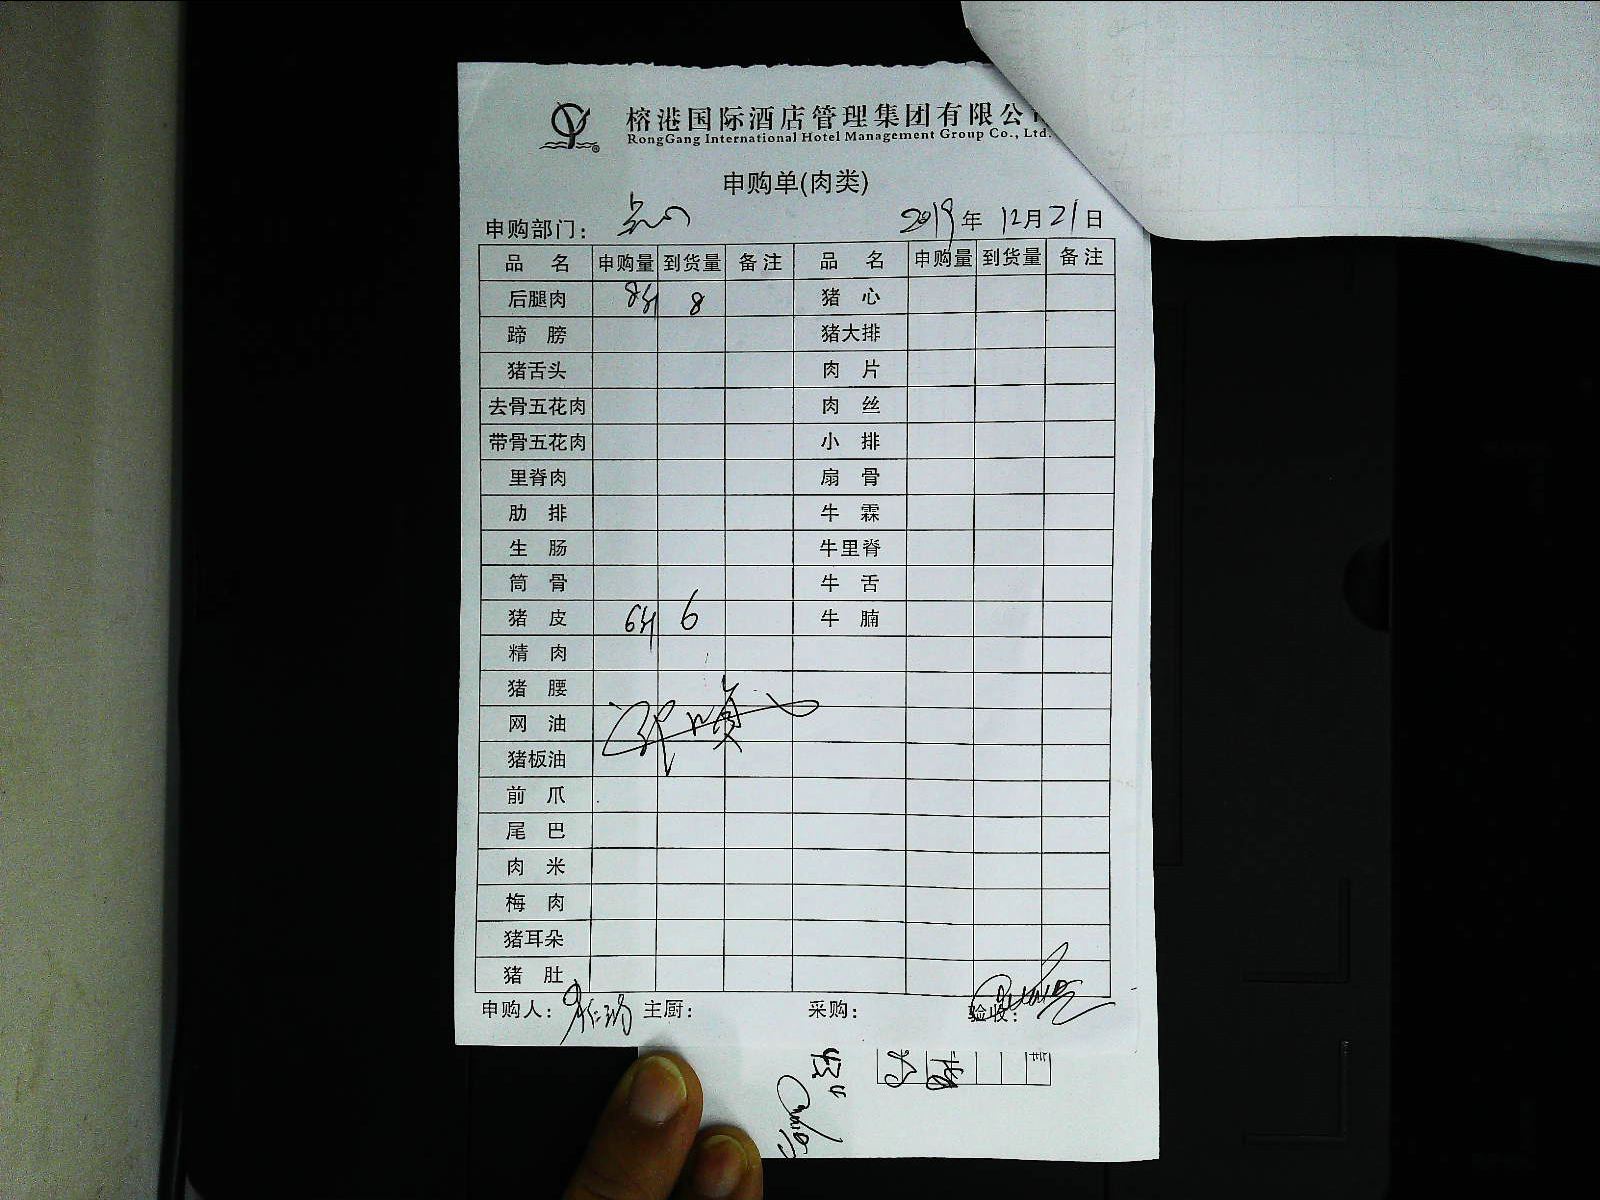 榕港国际酒店管理集团有限公
RongGang International Hotel Management Group Co., Ltd.
申购单(肉类)
申购部门: 点心 2019年 12月21日
品 名 申购量 到货量 备注 品 名 申购量 到货量 备注
后腿肉 8斤 8 猪 心
蹄 膀 猪大排
猪舌头 肉 片
去骨五花肉 肉 丝
带骨五花肉 小 排
里脊肉 扇 骨
肋 排 牛 霖
生 肠 牛里脊
筒 骨 牛 舌
猪 皮 6斤 6 牛 腩
精 肉
猪 腰
网 油
猪板油
前 爪
尾 巴
肉 米
梅 肉
猪耳朵
猪 肚
申购人: 主厨: 采购: 验收: